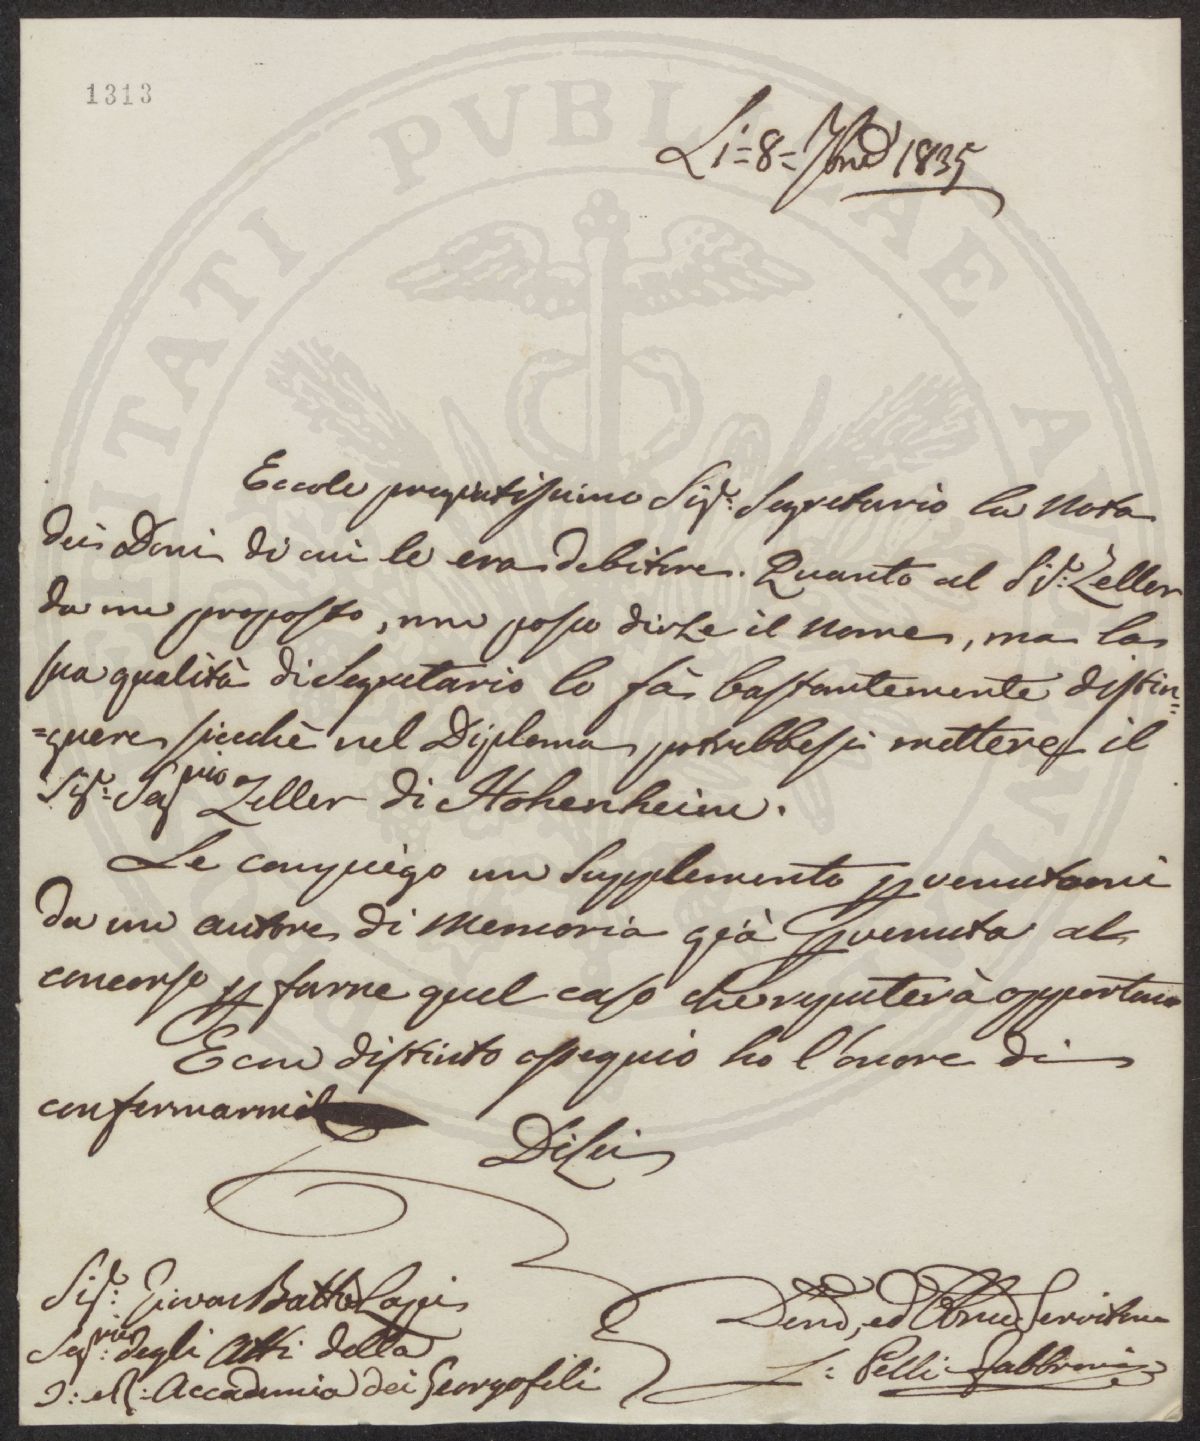 1313
Li = 8 = 1835
Eccole pregiatissimo Sigr: Segretario la Nota
dei Doni di cui le era debitore. Quanto al Sigr: Zeller
da me proposto, non posso dirle il nome, ma la
sua qualità di Segretario lo fà bastantemente distin=
=guere sicchè nel Diploma potrebbesi mettere il
Sigr: Segrio Zeller di Hohenheim.
Le compiego un Supplemento pvenutomi
da un autore di Memoria già pvenuta al
concorso p farne quel caso che reputerà opportuno
E con distinto ossequio ho l'onore di
confermarmi
Di Lei
Sigr: Giovan Battà Lapi
Segrio: degli Atti della
I: e R: Accademia dei Georgofili
Devo, ed Obmo Servitore
L: Pelli Fabbroni
PVBLICAE